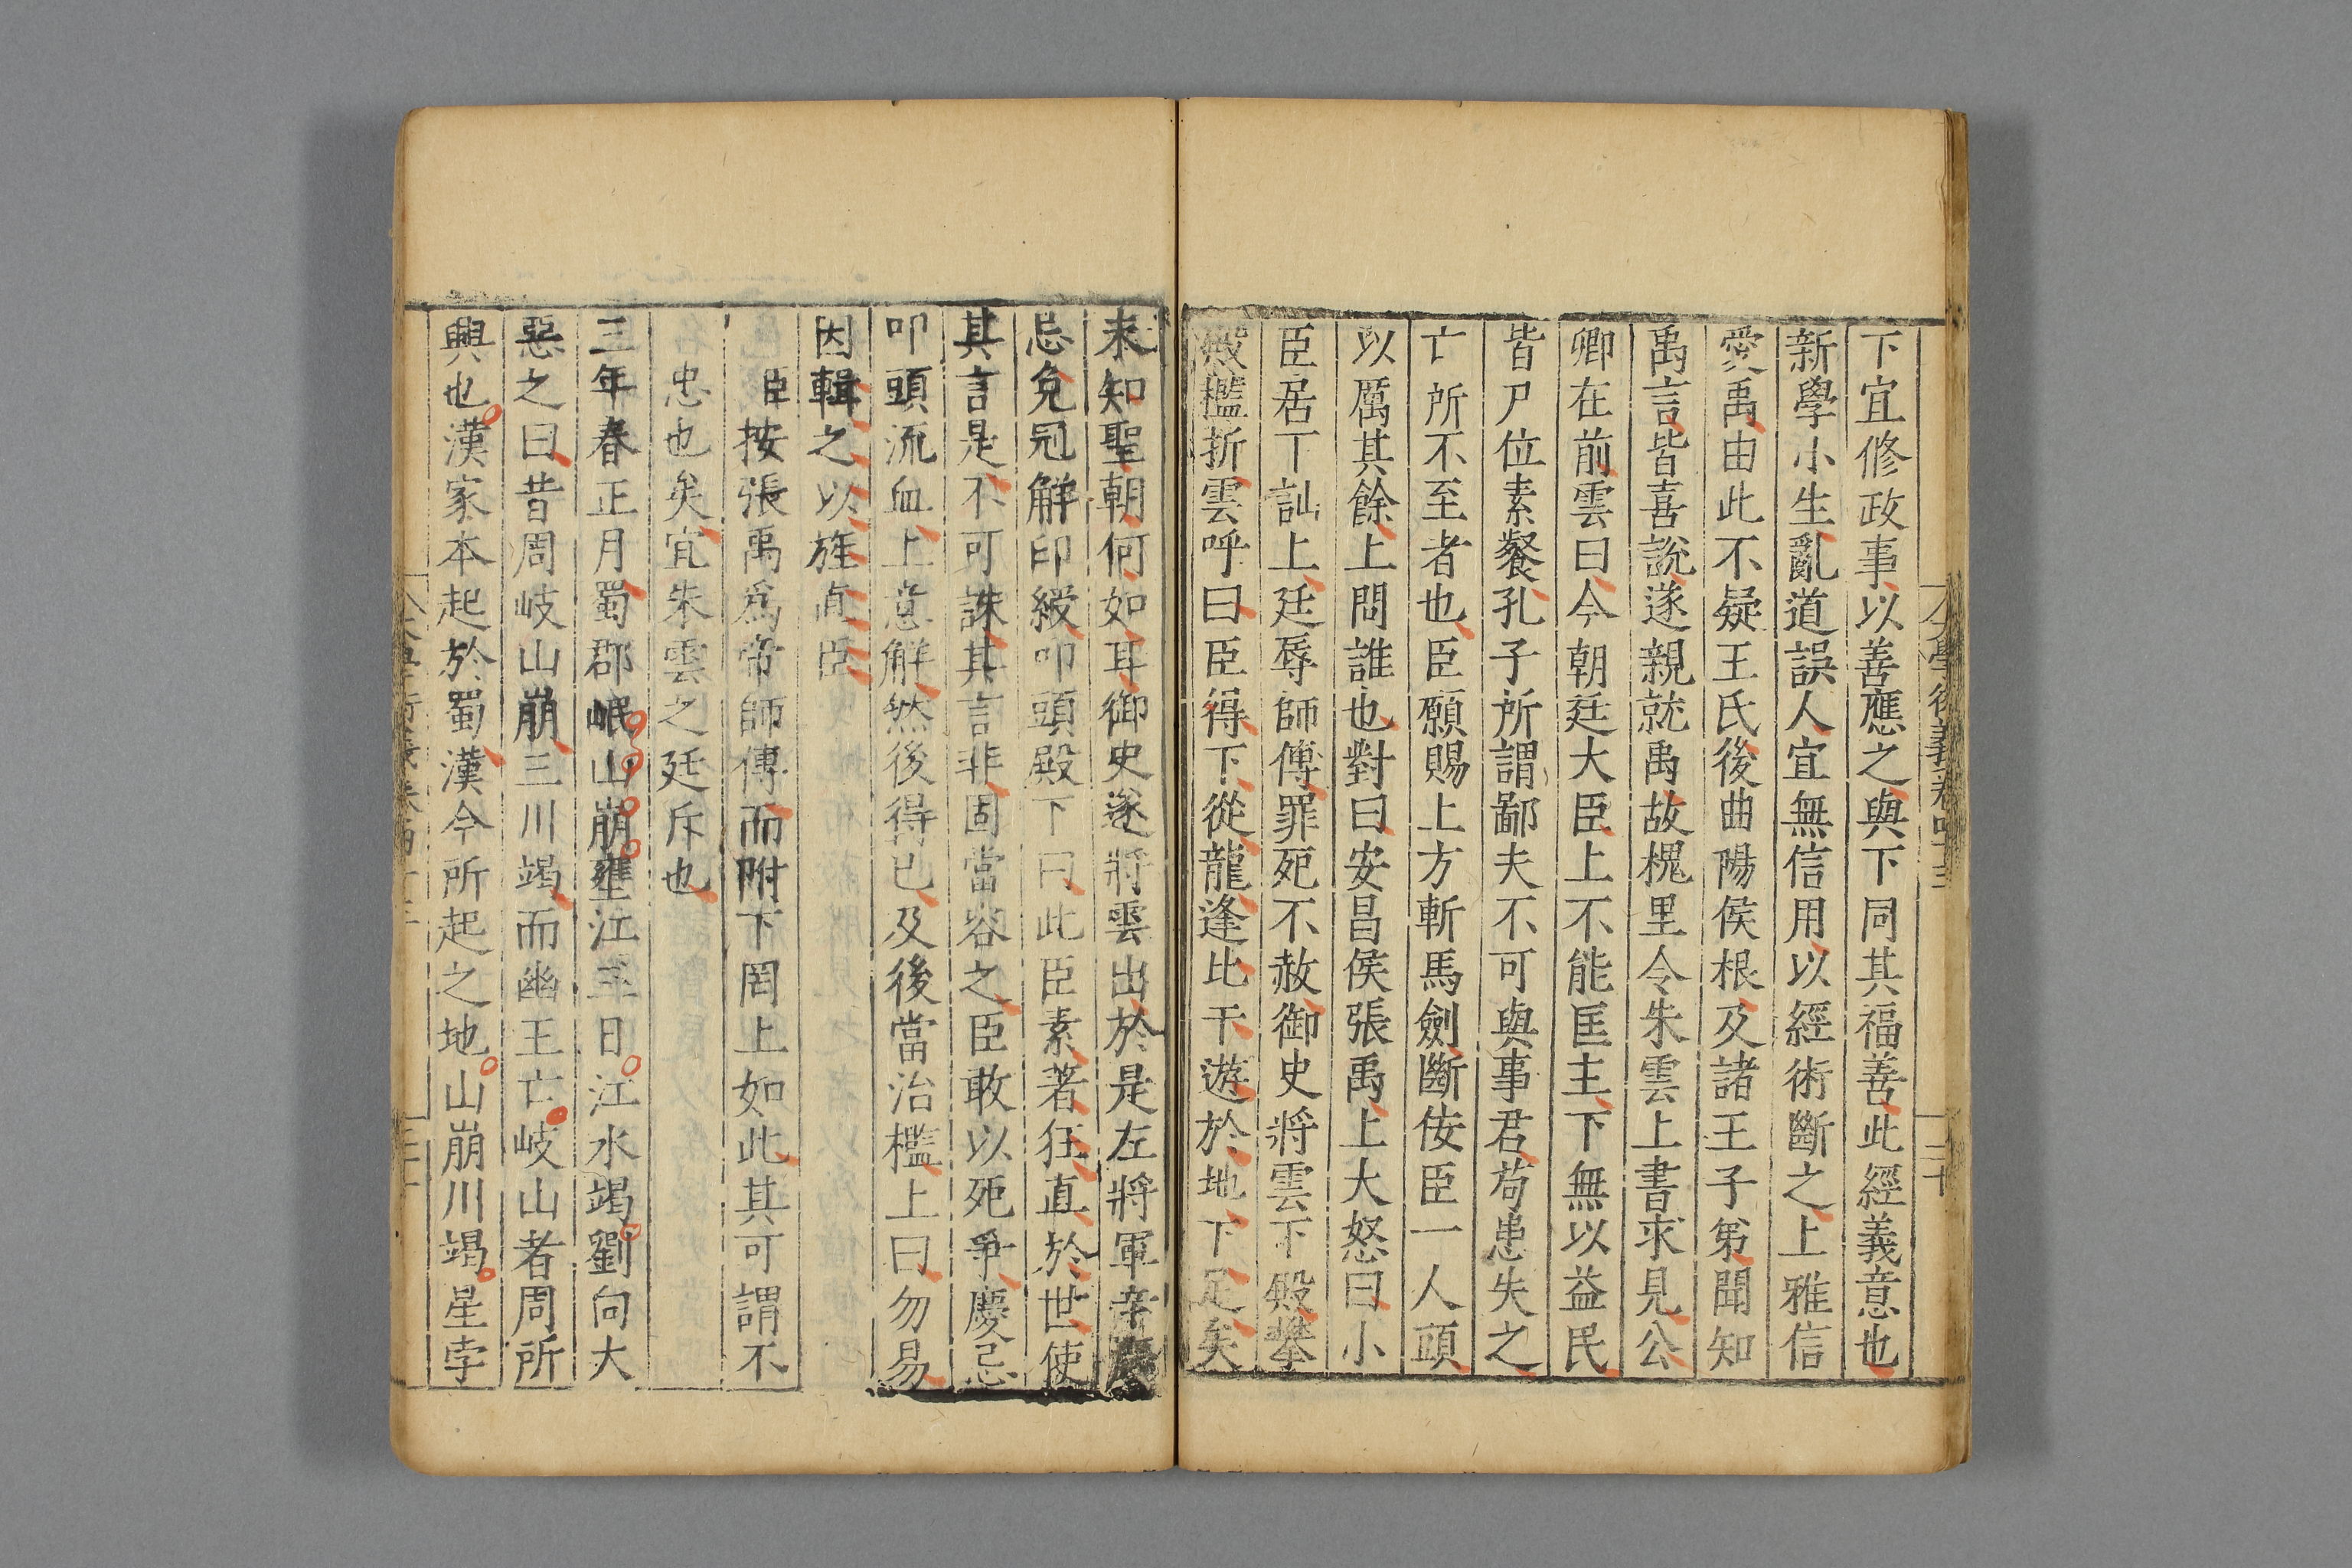 下宜修政事以善應之與下同其福善此經義意也
新學小生亂道誤人宜無信用以經術斷之上雅信
愛禹由此不疑王氏後曲陽侯根及諸王子弟聞知
禹言皆喜說遂親就禹故槐里令朱雲上書求見公
卿在前雲曰今朝廷大臣上不能匡主下無以益民
皆尸位素餐孔子所謂鄙夫不可與事君苟患失之
亡所不至者也臣願賜上方斬馬劍斷佞臣一人頭
以厲其餘上問誰也對曰安昌侯張禹上大怒曰小
臣居下訕上廷辱師傅罪死不赦御史將雲下殿攀
殿檻折雲呼曰臣得下從龍逢比干遊於地下足矣
未知聖朝何如耳御史遂將雲出於是左將軍辛慶
忌免冠解印綬叩頭殿下曰此臣素著狂直於世使
其言是不可誅其言非固當容之臣敢以死爭慶忌
叩頭流血上意解然後得已及後當治檻上曰勿易
因輯之以旌直臣
臣按張禹爲帝師傅而附下罔上如此其可謂不
忠也矣宜朱雲之廷斥也
三年春正月蜀郡岷山崩壅江三日江水竭劉向大
惡之曰昔周岐山崩三川竭而幽王亡岐山者周所
興也漢家本起於蜀漢今所起之地山崩川竭星孛